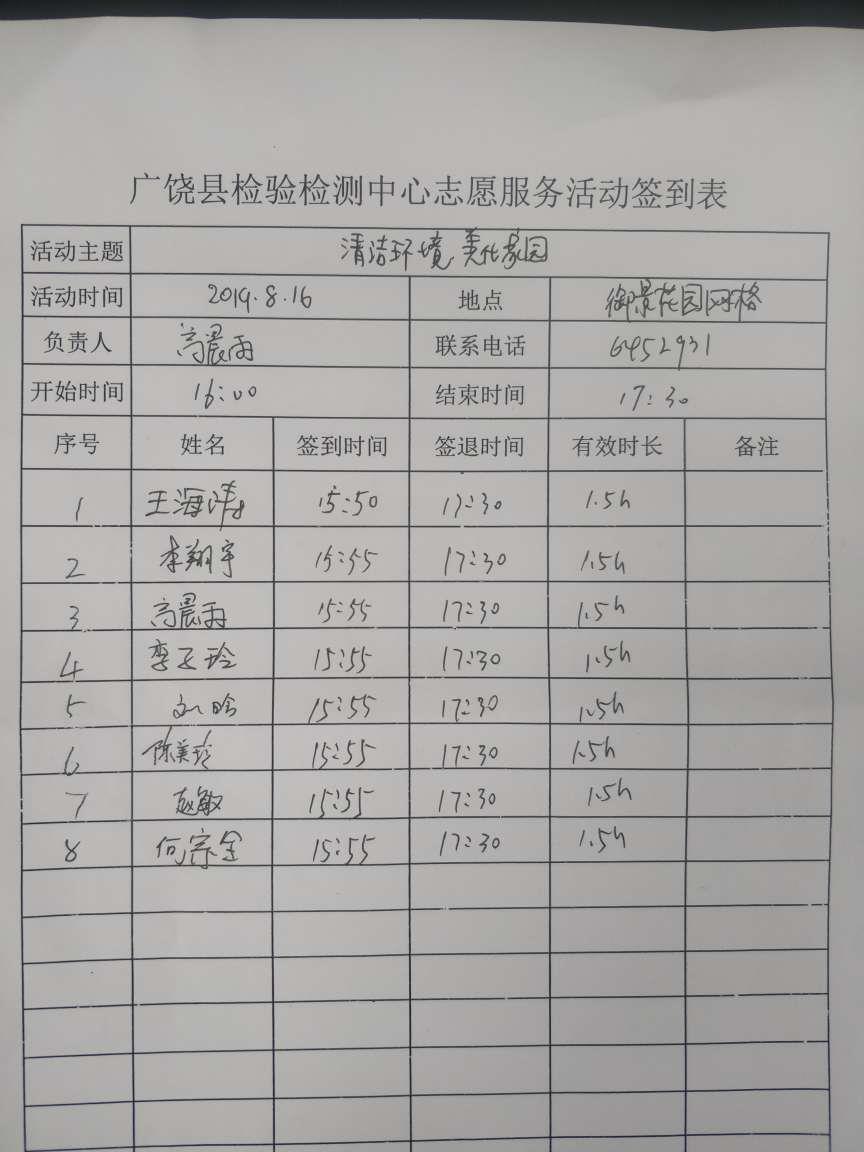 广饶县检验检测中心志愿服务活动签到表
活动主题 清洁环境,美化家园
活动时间 2019.8.16 地点 御景花园网格
负责人 高晨雨 联系电话 6452931
开始时间 16:00 结束时间 17:30
序号 姓名 签到时间 签退时间 有效时长 备注
1 王海涛 15:50 17:30 1.5h
2 李翔宇 15:55 17:30 1.5h
3 高晨雨 15:55 17:30 1.5h
4 李玉玲 15:55 17:30 1.5h
5 刘晗 15:55 17:30 1.5h
6 陈美玲 15:55 17:30 1.5h
7 赵敏 15:55 17:30 1.5h
8 何宗金 15:55 17:30 1.5h